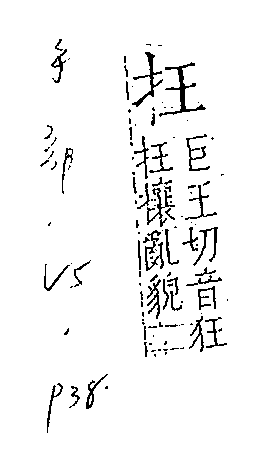 抂
巨王切音狂
抂攘亂貌
手部.V5.P38.